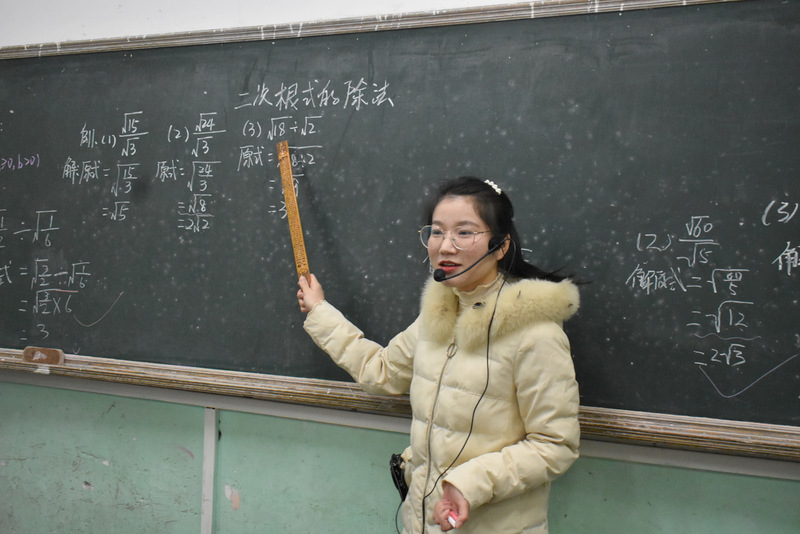 二次根式的除法
例.(1) √15/√3
解:原式=√15/3
=√5
(2) √24/√3
原式=√24/3
=√8
=2√2
(3) √18÷√2
原式=√18÷2
=3
a≥0,b>0)
÷√1/6
式=√3/2÷√1/6
=√3/2×6
=3
(2) √60/√5
解原式=√60/5
=√12
=2√3
(3)
解